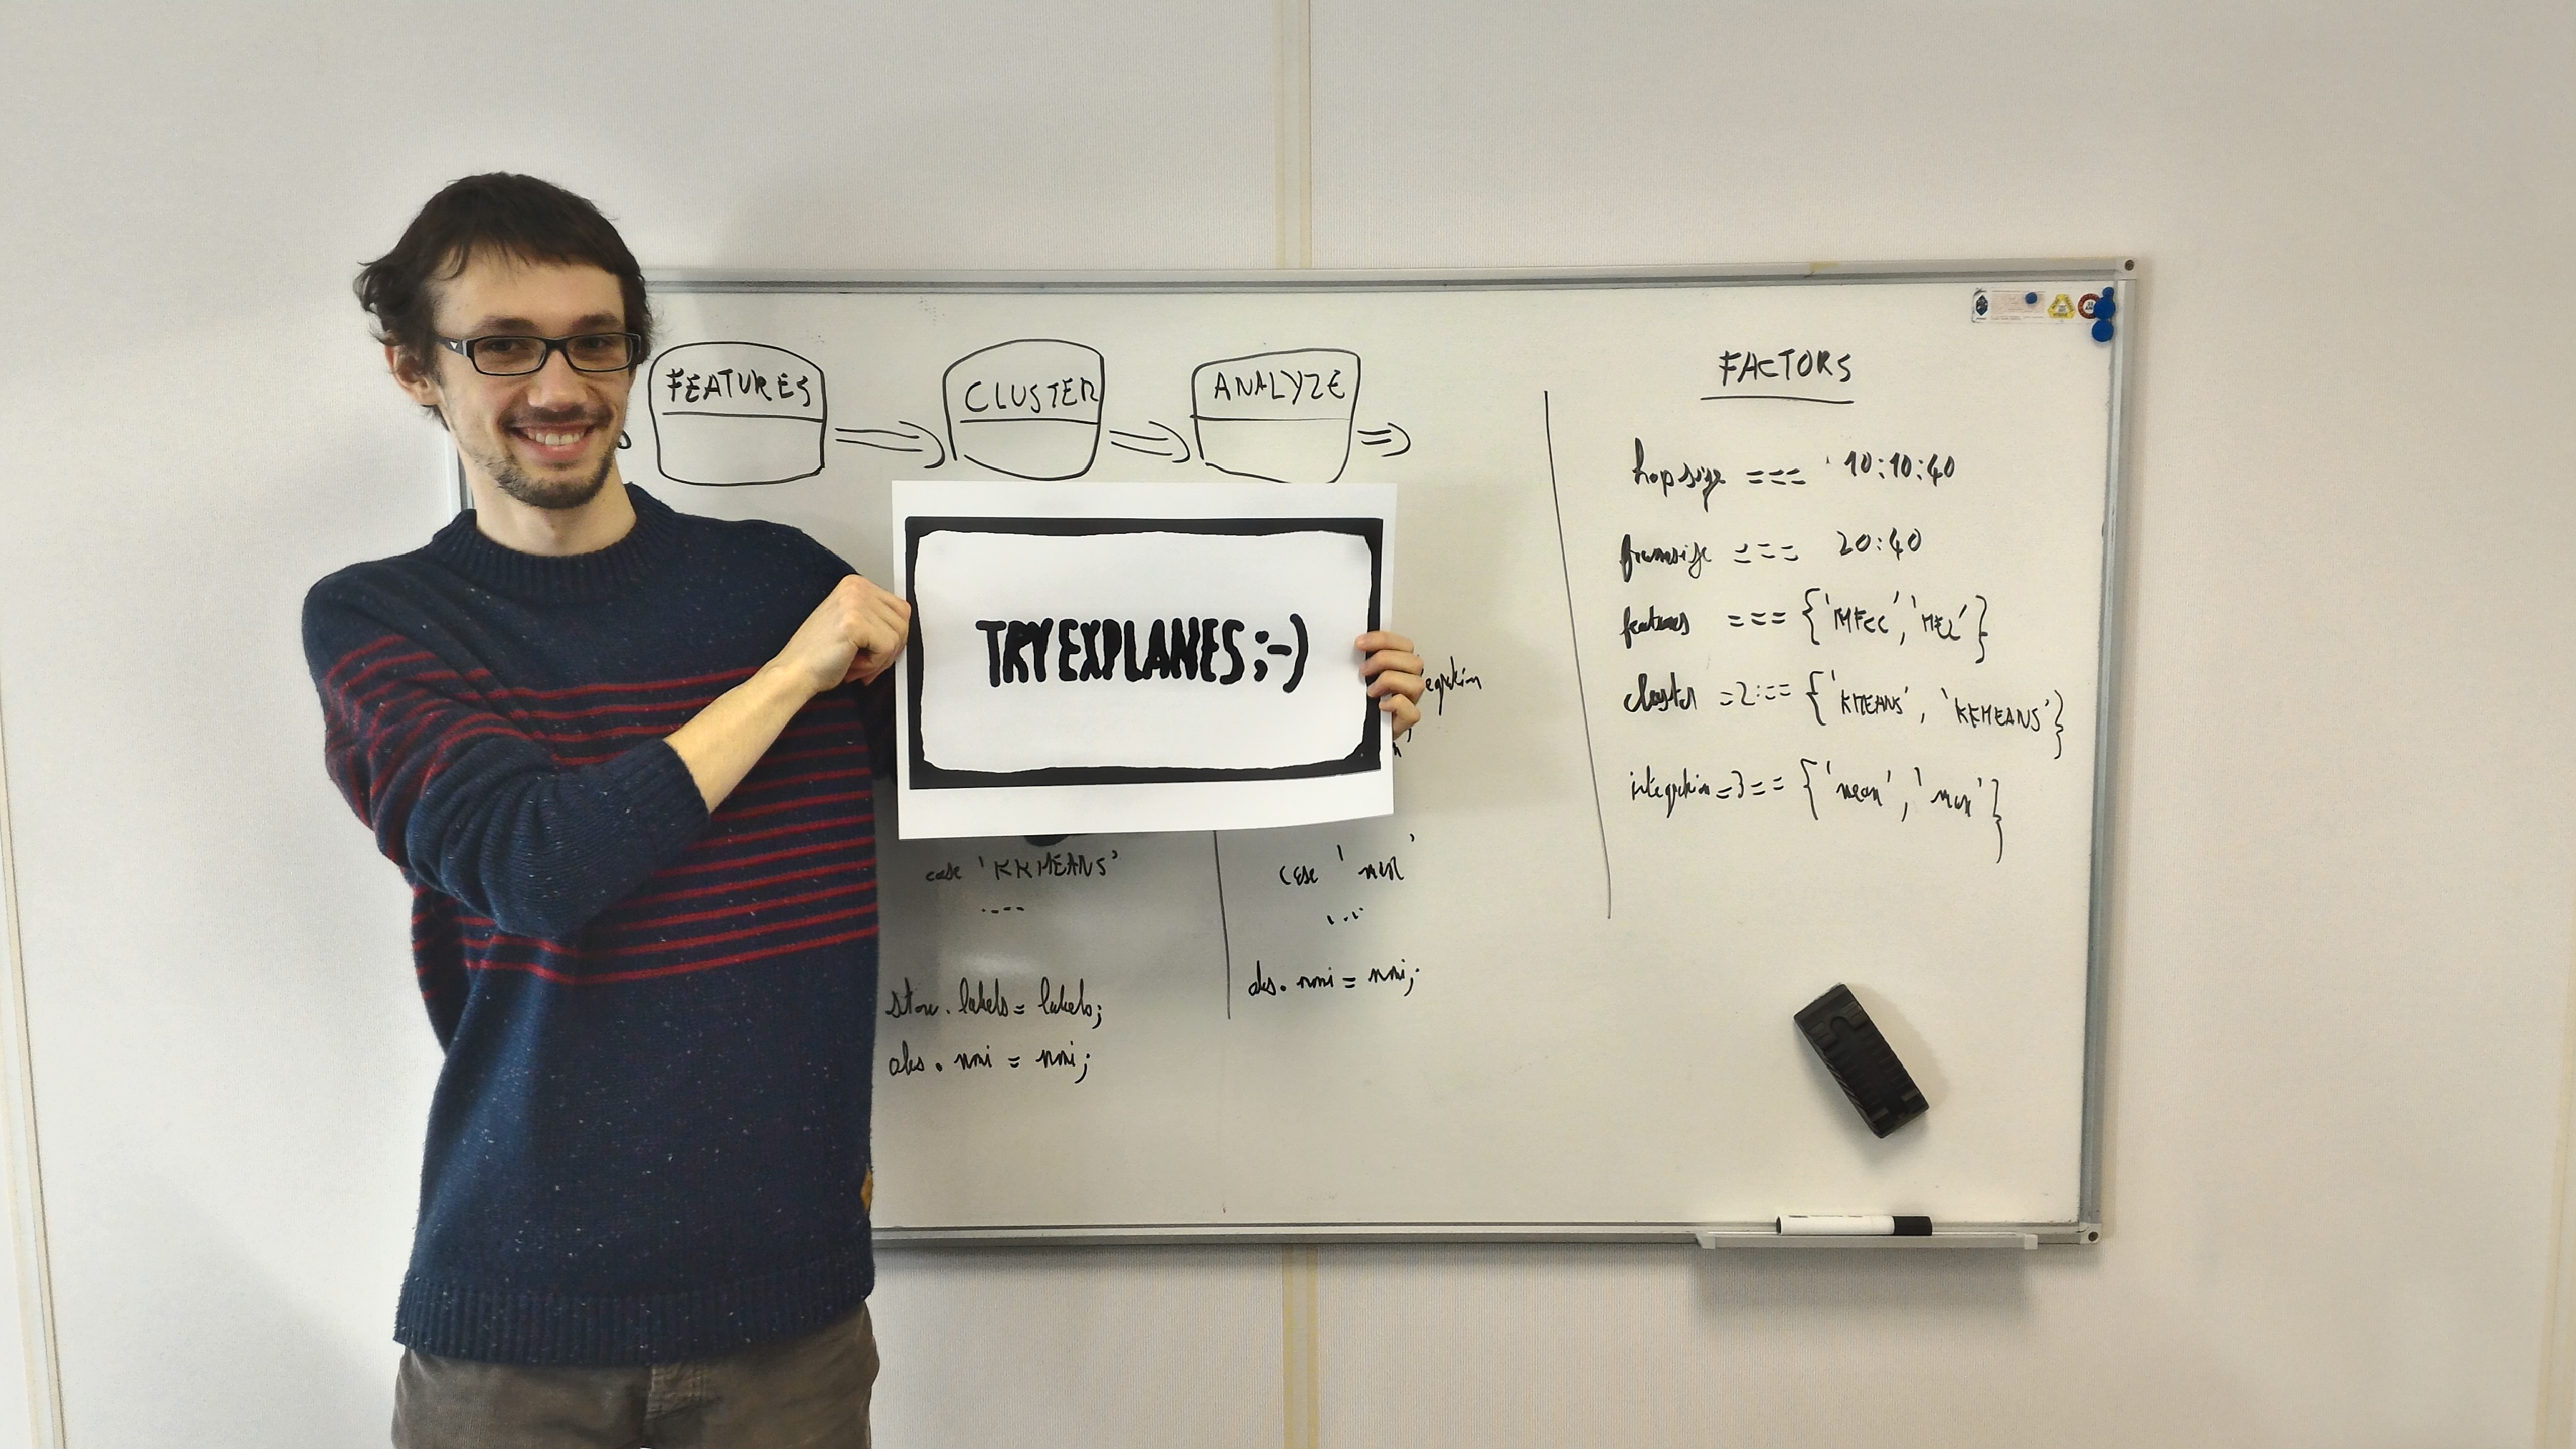 FEATURES
CLUSTER
ANALYZE
TRY EXPLANES ;-)
case 'KKMEANS'
....
store.labels = labels;
obs.nmi = nmi;
case '
...
obs.nmi = nmi;
FACTORS
hopsize === 10:10:40
framesize === 20:40
features === {'MFCC', 'MEL'}
cluster =2=== {'KMEANS', 'KKMEANS'}
integration =3== {'mean', 'max'}